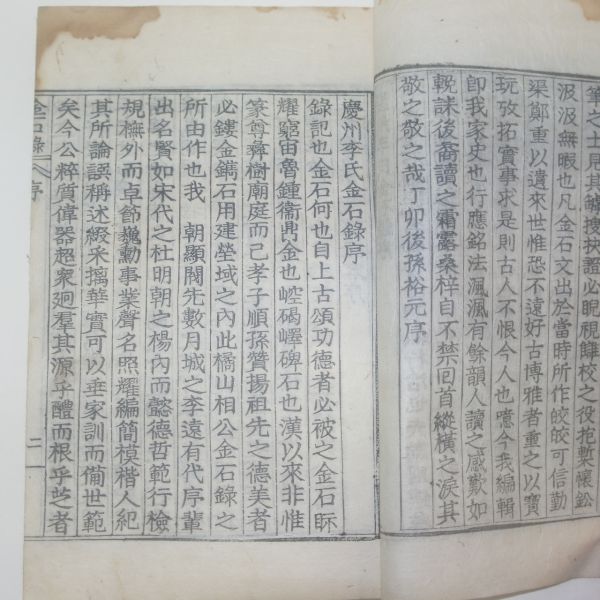 筆之士見其觚搜抉證必眂視讎校之役抱槧懷鈆
汲汲無暇也凡金石文出於當時所作皎皎可信勤
渠鄭重以遺來世惟恐不遠好古博雅者重之以寶
玩攷拓實事求是則古人不恨今人也噫今我編輯
卽我家史也行應銘法渢渢有餘韻人讀之感歎如
輓誄後裔讀之霜露桑梓自不禁回首縱橫之淚其
敬之敬之哉丁卯後孫裕元序
慶州李氏金石錄序
錄記也金石何也自上古頌功德者必被之金石眎
耀窮宙魯鍾衞鼎金也崆碣嶧碑石也漢以來非惟
篆尊彝樹廟庭而已孝子順孫贊揚祖先之德美者
必鏤金鐫石用建塋域之內此橘山相公金石錄之
所由作也我 朝顯閥先數月城之李遠有代序輩
出名賢如宋代之杜明朝之楊內而懿德哲範行檢
規橅外而卓節巍勳事業聲名照耀編簡模楷人紀
其所論譔稱述綴采摛華實可以垂家訓而備世範
矣今公粹質偉器超衆迥羣其源乎醴而根乎芝者
金石錄 序 二